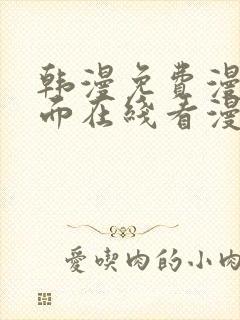 韩漫免费漫
而在线看漫
爱吃肉的小肉